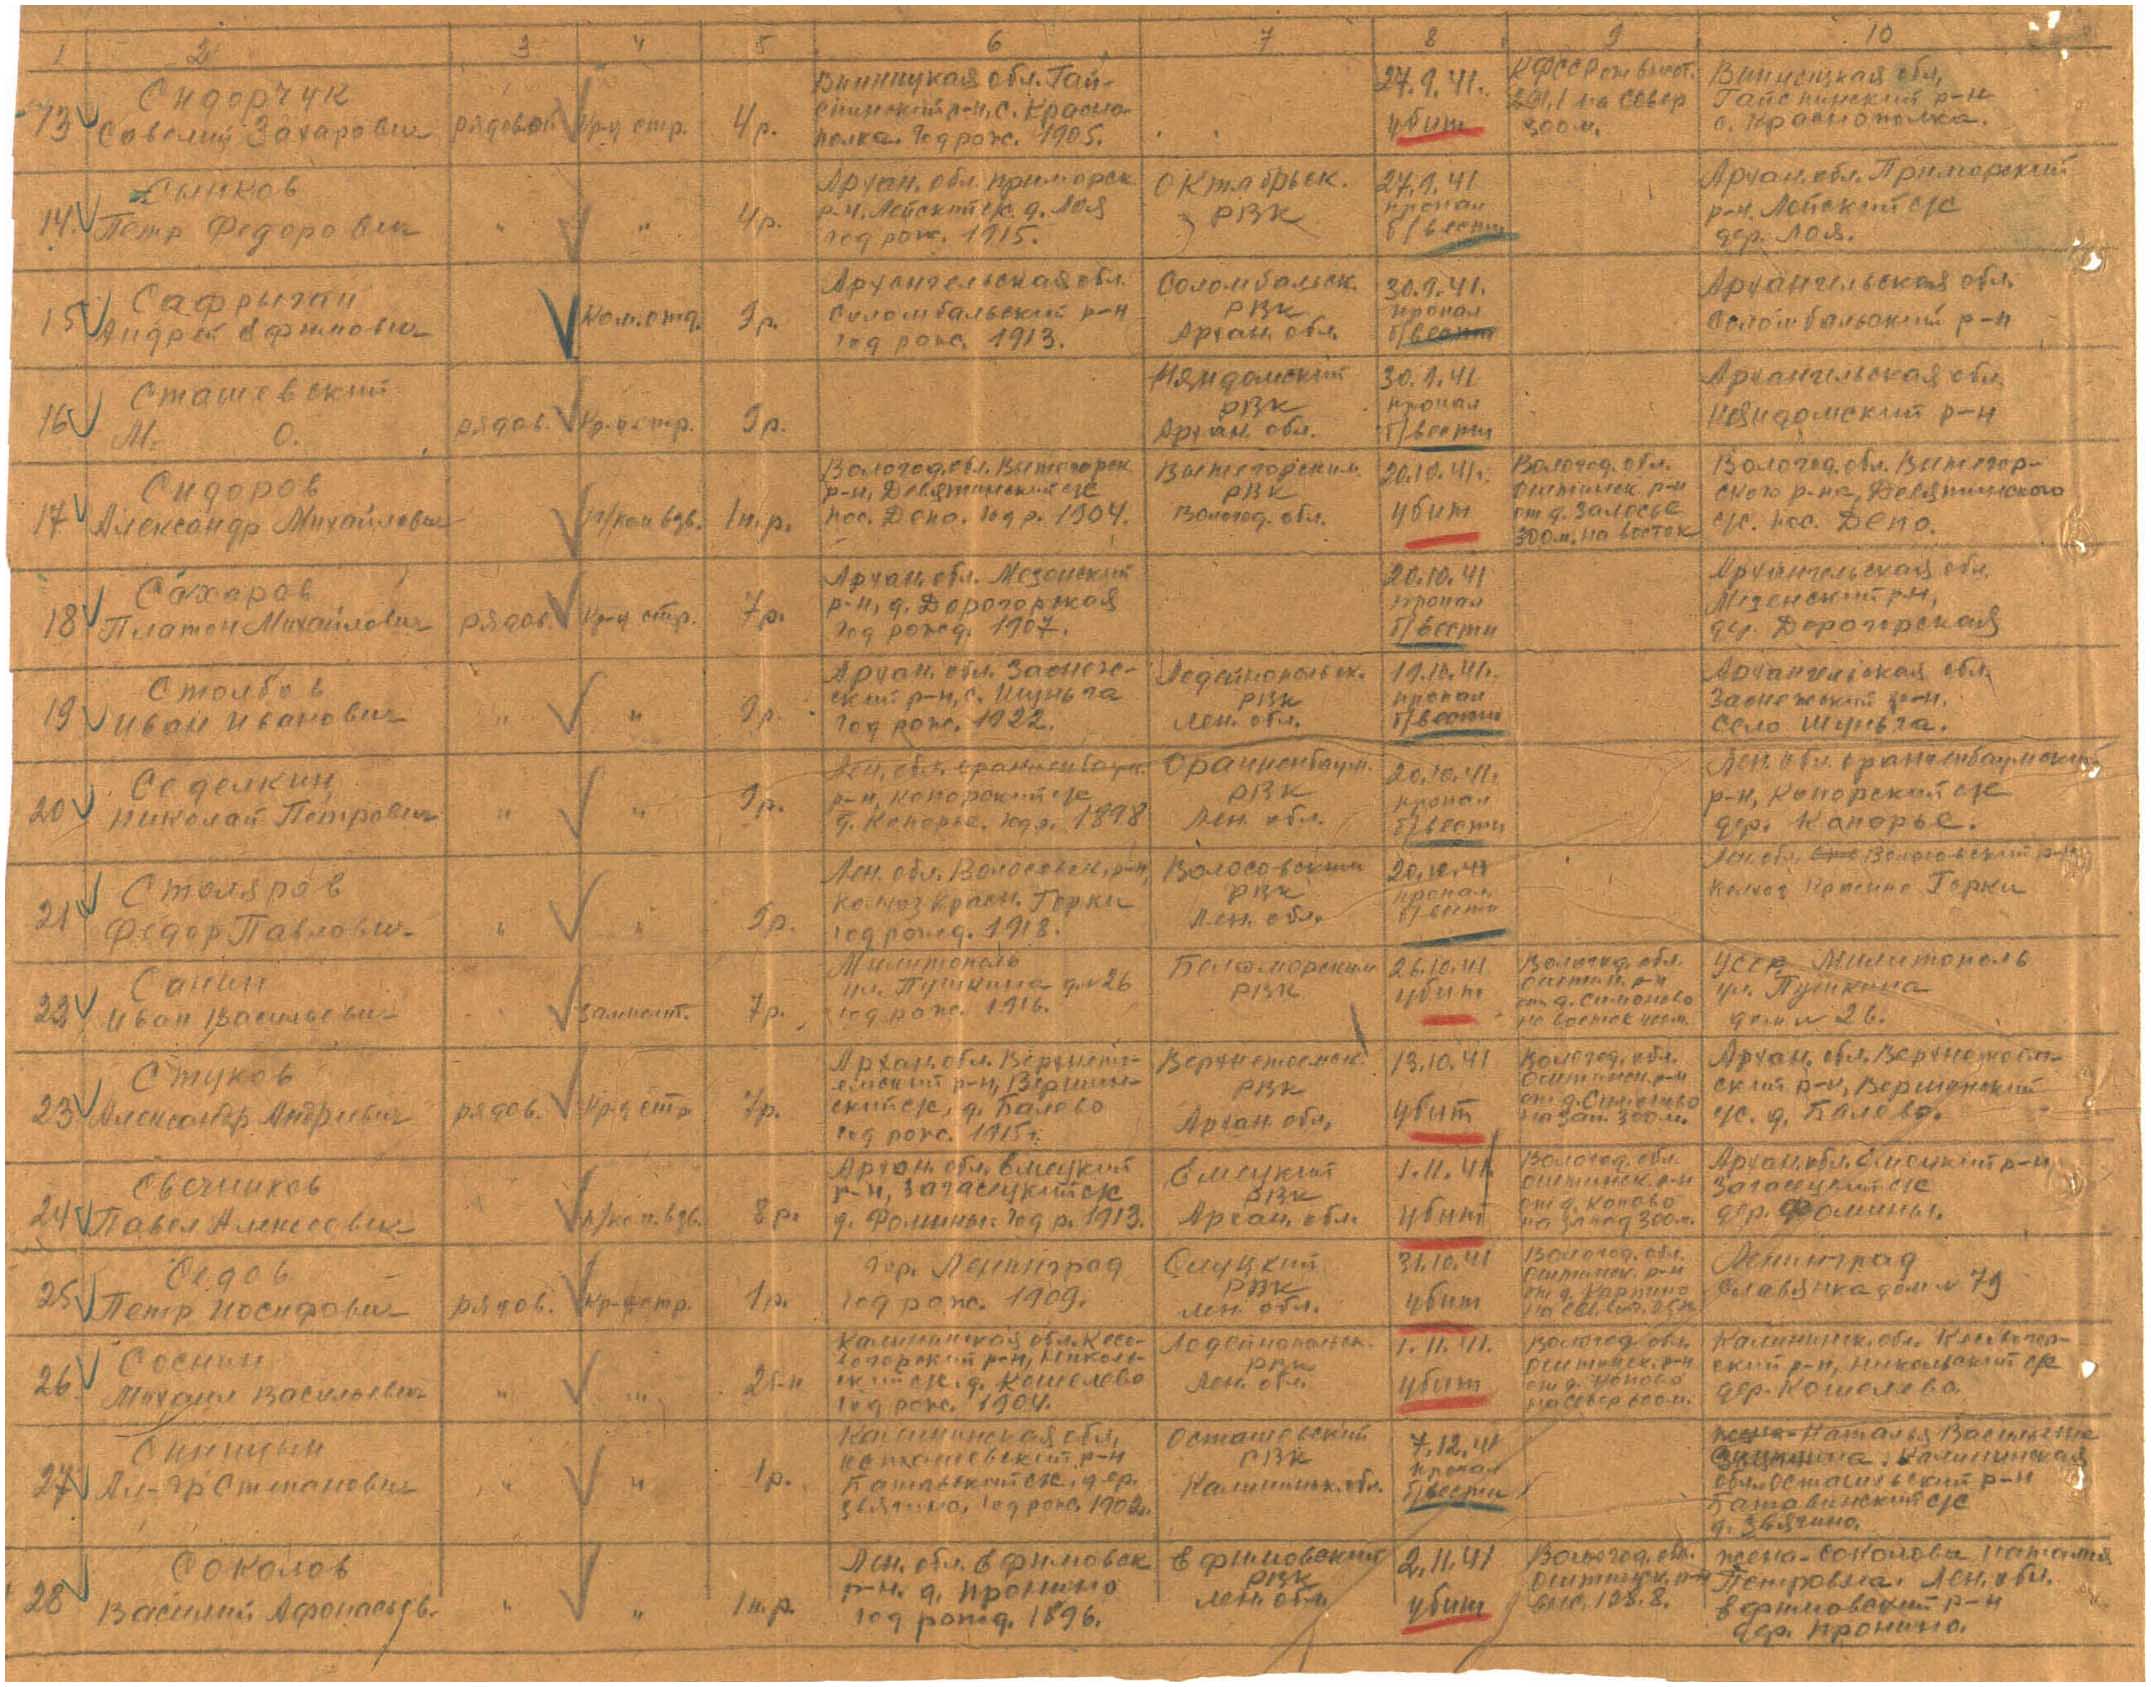 1 2 3 4 5 6 7 8 9 10
13 Сидорчук Савелий Захарович рядовой кр-ц стр. 4р.
Винницкая обл. Гай-
синский р-н, с. Красно-
полка. Год рож. 1905.
27.9.41.
убит
КФССР от высот.
на север
300 м.
Винницкая обл,
Гайсинский р-н
с. Краснополка.
14. Сынков Петр Федорович " " 4р.
Архан. обл. Приморск
р-н. Лойский с/с. д. Лоя
год рож. 1915.
Октябрьск.
РВК
27.9.41
пропал
б/вести
Архан. обл. Приморский
р-н. Лойский с/с
дер. Лоя.
15 Сафрыган Андрей Ефимович Ком. отд. 9р.
Архангельская обл.
Соломбальский р-н
год рож. 1913.
Соломбальск.
РВК
Архан. обл.
30.9.41.
пропал
б/вести
Архангельская обл.
Соломбальский р-н
16 Сташевский М. О. рядов. Кр-ц стр. 9р.
Няндомский
РВК
Архан. обл.
30.9.41
пропал
б/вести
Архангельская обл.
Няндомский р-н
17 Сидоров Александр Михайлович п/ком взв. 1п.р.
Вологод. обл. Вытегорск
р-н, Девятинский с/с
пос. Депо. Год р. 1904.
Вытегорским
РВК
Вологод. обл.
20.10.41.
убит
Вологод. обл.
Оштинск. р-н
от д. Залосье
300 м. на восток
Вологод. обл. Вытегор-
ского р-на, Девятинского
с/с. пос. Депо.
18 Сахаров Платон Михайлович рядов. Кр-ц стр. 7р.
Архан. обл. Мезенский
р-н, д. Дорогорская
Год рожд. 1907.
20.10.41
пропал
б/вести
Архангельская обл.
Мезенский р-н,
дер. Дорогорская
19 Столбов Иван Иванович " " 9р.
Архан. обл. Заонеж-
ский р-н, с. Шуньга
Год рож. 1922.
Лодейнопольск.
РВК
Лен. обл.
19.10.41.
пропал
б/вести
Архангельская обл.
Заонежский р-н.
село Шуньга.
20 Седелкин Николай Петрович " " 9р.
Лен. обл. Ораниенбаум.
р-н, Копорский с/с
д. Копорье. год р. 1898
Ораниенбаум.
РВК
Лен. обл.
20.10.41.
пропал
б/вести
Лен. обл. Ораниенбаумский
р-н, Копорский с/с
дер. Капорье.
21 Столяров Федор Павлович " " 5р.
Лен. обл. Волосовск. р-н,
колхоз Красн. Горки
год рожд. 1918.
Волосовским
РВК
Лен. обл.
20.10.41
пропал.
б/вести
Лен. обл. Волосовский р-н
колхоз Красные Горки
22 Санин Иван Васильевич Замполит. 7р.
Милитополь
ул. Пушкина д. №26
год рож. 1916.
Беломорским
РВК
26.10.41
убит
Вологод. обл.
Оштин. р-н
от д. Симоново
на восток
УССР Милитополь
ул. Пушкина
дом № 26.
23 Стуков Александр Андреевич рядов. Кр-ц стр. 7р.
Архан. обл. Верхнето-
емский р-н, Вершин-
ский с/с, д. Балово
год рож. 1915 г.
Верхнетоемск.
РВК
Архан. обл.
13.10.41
убит
Вологод. обл.
Оштинск. р-н
от д. Симоново
на зап. 300 м.
Архан. обл. Верхнетоем-
ский р-н, Вершинский
с/с. д. Балово.
24 Свечников Павел Алексеевич п/ком. взв. 8р.
Архан. обл. Емецкий
р-н, Загасецкий с/с
д. Фомины. Год р. 1913.
Емецкий
РВК
Архан. обл.
1.11.41
убит
Вологод. обл.
Оштинск. р-н
от д. Копово
на запад 300 м.
Архан. обл. Емецкий р-н
Загасецкий с/с
дер. Фомины.
25 Седов Петр Иосифович рядов. Кр-ц стр. 1р.
Гор. Ленинград
Год рож. 1909.
Слуцкий
РВК
Лен. обл.
31.10.41
убит
Вологод. обл.
Оштинск. р-н
от д. Карпино
Ленинград
Славянка дом № 79
26. Соснин Михаил Васильевич " " 2б-н
Калининская обл. Кесо-
вогорский р-н, Николь-
ский с/с. д. Кошелево
Год рож. 1904.
Лодейнопольск.
РВК
Лен. обл.
1.11.41.
убит
Вологод. обл.
Оштинск. р-н
от д. Копово
на север 600 м.
Калининск. обл. Кесовогор-
ский р-н, Никольский с/с
дер. Кошелево.
27 Синицын Ал-др Степанович " " 1р.
Калининская обл,
Осташевский р-н
дер.
Звягино, год рож. 1902.
Осташевский
РВК
Калининск. обл.
7.12.41
пропал
б/вести
жена - Наталья Васильевна
Синицина. Калининская
обл. Осташевский р-н
с/с
д. Звягино.
28 Соколов Василий Афонасьев. " " 1п.р.
Лен. обл. Ефимовск
р-н. д. Пронино
год рожд. 1896.
Ефимовский
РВК
Лен. обл.
2.11.41
убит
Вологод. обл.
Оштинск. р-н
выс. 128.8.
жена - Соколова Наталия
Петровна. Лен. обл.
Ефимовский р-н
дер. Пронино.